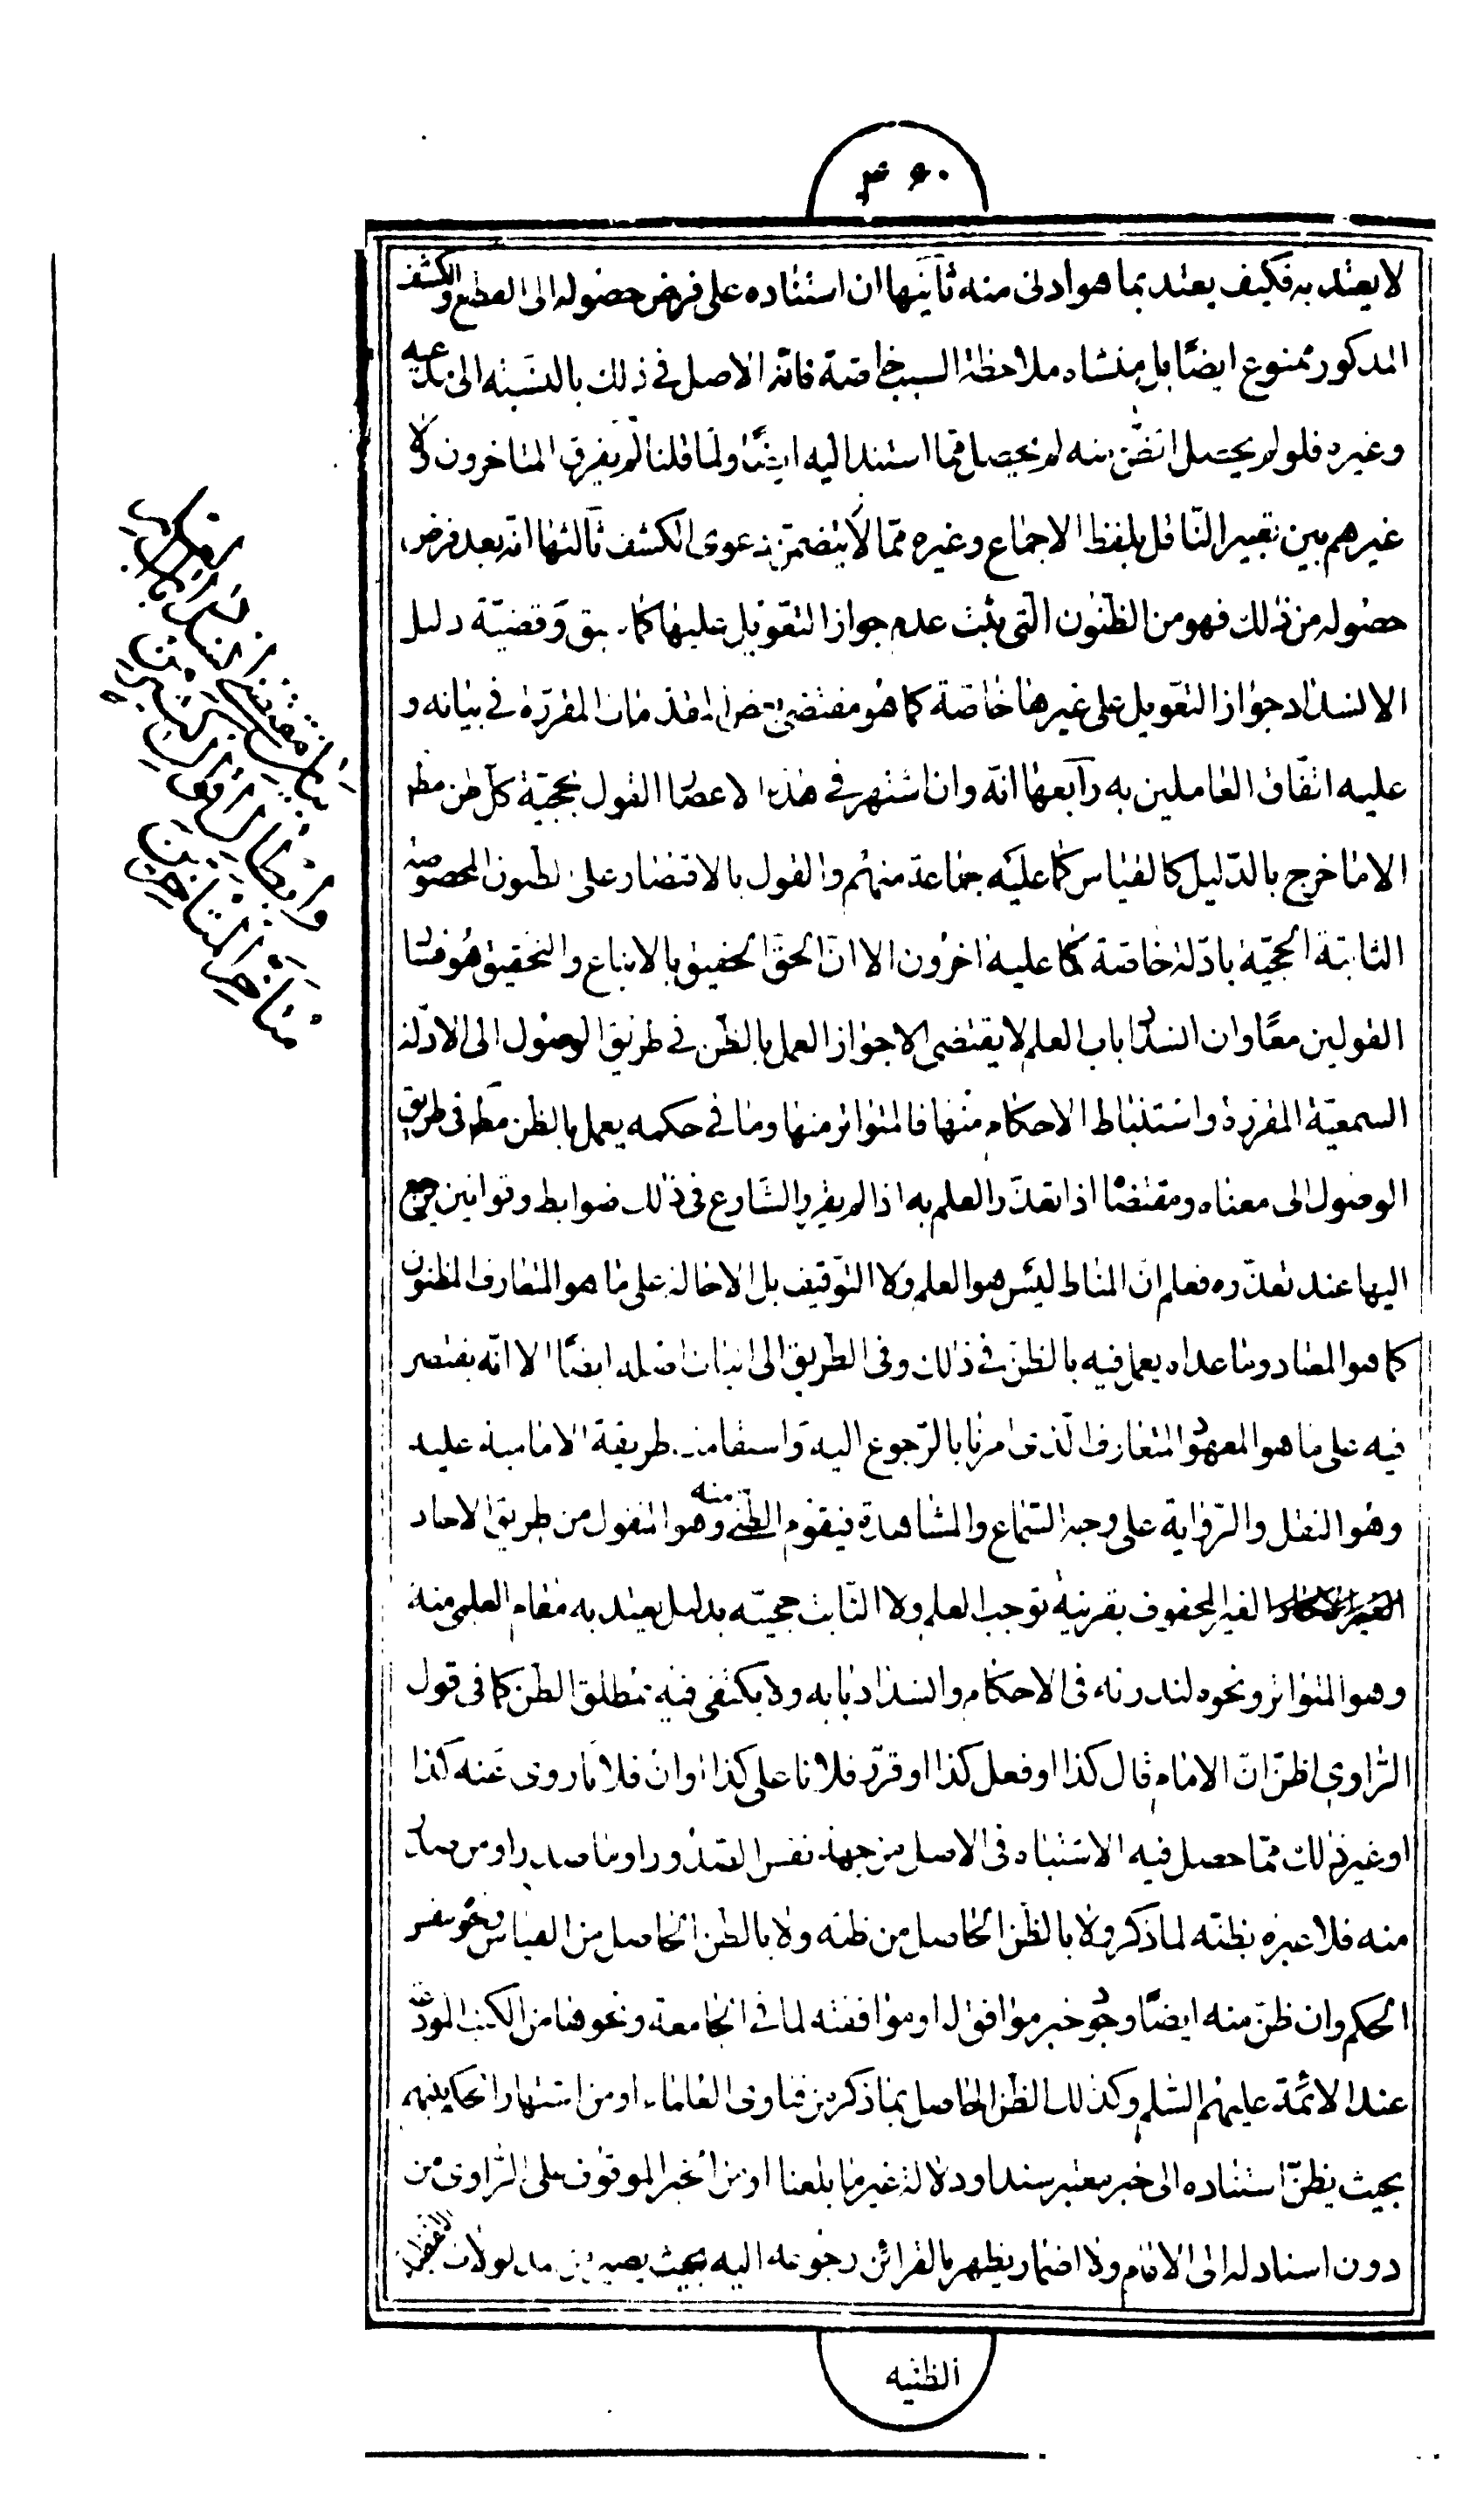 ٣٥٠
لا يعتد به فكيف يعتد بما هو ادنى منه ثانيها ان استناده على فرض حصوله الى القطع والكشف
المذكور ممنوع ايضًا بل منشاه ملاحظة السبب خاصة فانه الاصل في ذلك بالنسبة الى مدعيه
وغيره فلو لم يحصل الظن منه لم يحصل مما استند اليه ايضًا ولما قلنا لم يفرق المتاخرون ولا
غيرهم بين تعبير الناقل بلفظ الاجماع وغيره مما لا يتضمن دعوى الكشف ثالثها انه بعد فرض
حصوله من ذلك فهو من الظنون التي يثبت عدم جواز التعويل عليها كما سبق وقضية دليل
الانسداد جواز التعويل على غيرها خاصة كما هو مقتضى بعض المقدمات المقررة في بيانه و
عليه اتفاق العاملين به رابعها انه وان اشتهر في هذه الاعصار القول بحجية كل ظن مطم
الا ما خرج بالدليل كالقياس كما عليه جماعة منهم والقول بالاقتصار على الظنون المخصوصة
الثابتة الحجية بادلة خاصة كما عليه اخرون الا ان الحق الحقيق بالاتباع والتحقيق هو فساد
القولين معًا وان انسداد باب العلم لا يقتضى الا جواز العمل بالظن في طريق الوصول الى الادلة
السمعية المقررة واستنباط الاحكام منها فالمتواتر منها وما في حكمه يعمل بالظن مطم في طريق
الوصول الى معناه ومقتضاه اذا تعذر العلم به اذا لم يقرر الشارع في ذلك ضوابط وقوانين يرجع
اليها عند تعذره فعلم ان المناط ليس هو العلم ولا التوقيف بل الاحالة على ما هو المتعارف المظنون
كما هو المعتاد وما عداه يعمل فيه بالظن في ذلك وفي الطريق الى اثبات اصله ايضًا الا انه يقتصر
فيه على ما هو المعهود المتعارف الذي امرنا بالرجوع اليه واستقامت طريقة الامامية عليه
وهو النقل والرواية على وجه السماع والمشاهدة فيقوم الظني منه وهو المنقول من طريق الاحاد
الغير المحفوف بقرينة توجب العلم ولا الثابت حجيته بدليل يعتد به مقام العلمى منه
وهو المتواتر ونحوه لندرته في الاحكام وانسداد بابه ولا يكتفى فيه بمطلق الظن كما في قول
الراوي اظن ان الامام قال كذا او فعل كذا او قرر فلانا على كذا او ان فلانًا روى عنه كذا
او غير ذلك مما حصل فيه الاشتباه في الاصل من جهة نفس الصدور او ما صدر او من صدر
منه فلا عبرة بظنه لما ذكر ولا بالظن الحاصل من ظنه ولا بالظن الحاصل من القياس ونحوه بنفس
الحكم وان ظن منه ايضًا وجود خبر موافق له او موافقته لما في الجامعة ونحوها من الكتب المودعة
عند الائمة عليهم السلم وكذلك الظن الحاصل بما ذكر من فتاوى العلماء او من اشتهار الحكم بينهم
بحيث يظن استناده الى خبر معتبر سندا ودلالة غير ما بلغنا او من الخبر الموقوف على الراوى من
دون اسناد له الى الامام ولا اضمار يظهر بالقرائن رجوعه اليه بحيث يصير من مدلولات اللفظ
الظنيه